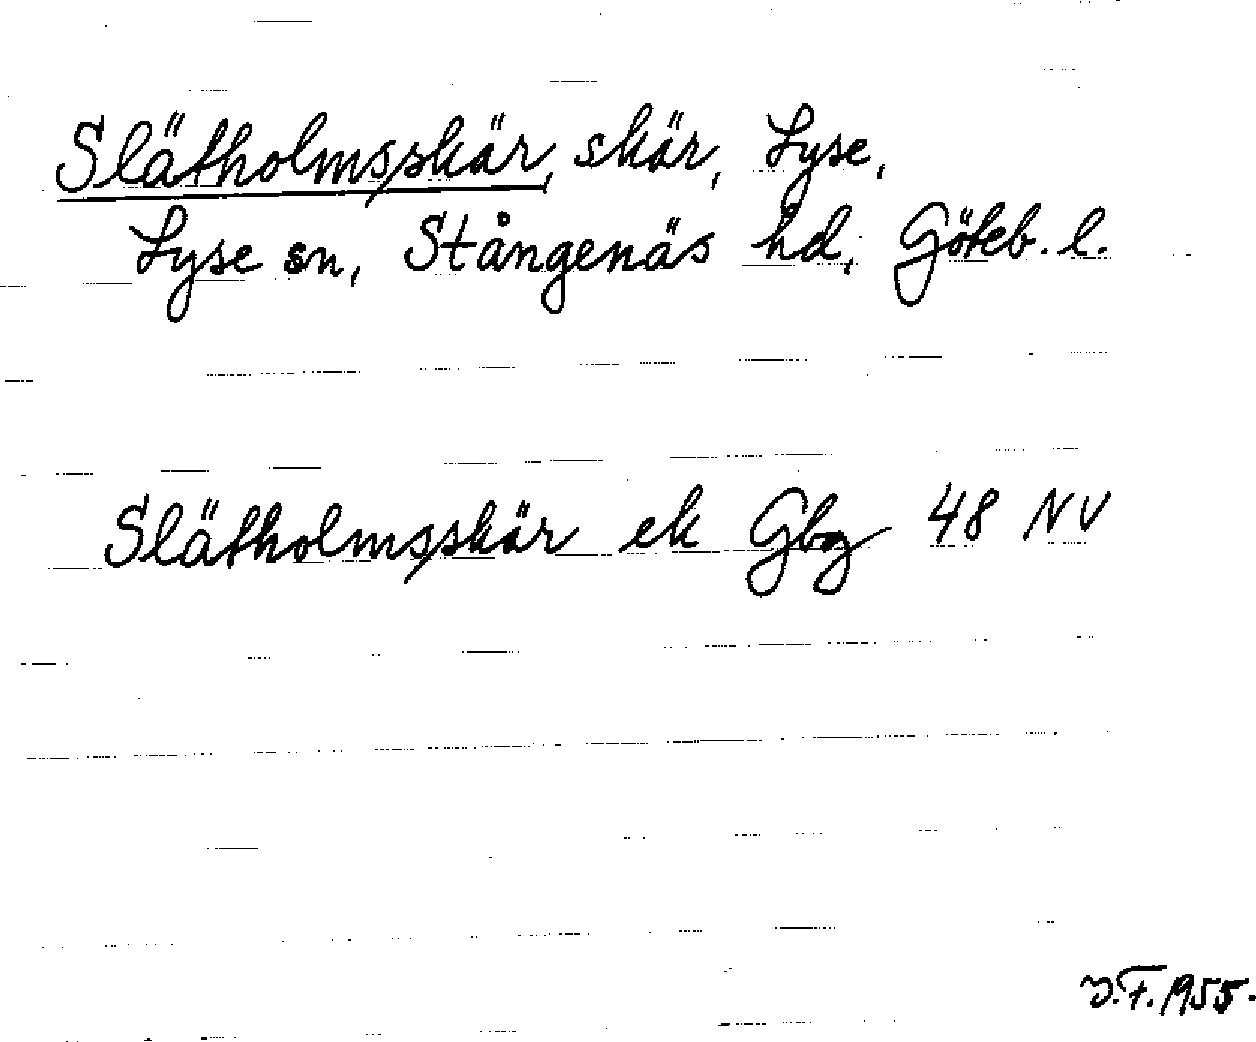 Slätholmsskär, skär, Lyse,
Lyse sn, Stångenäs hd, Göteb. l.
Slätholmsskär ek Gbg 48 NV
J.F. 1955.